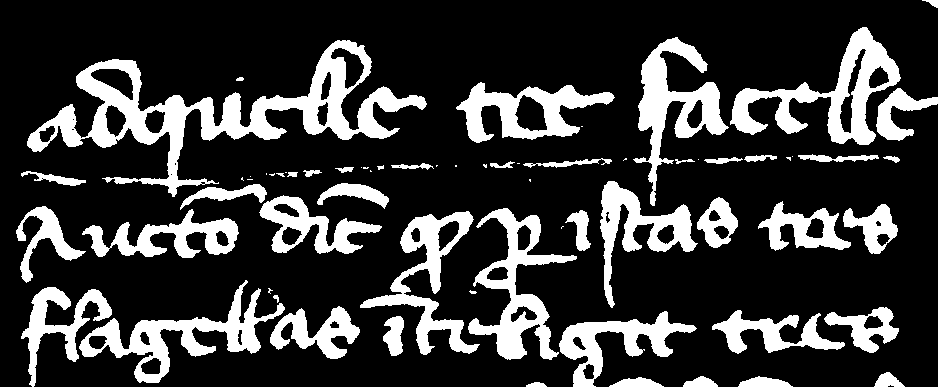 adquelle tre facelle
Auctō dic̄ ꝙ ꝑ istas tres
flagellas īteligit tres